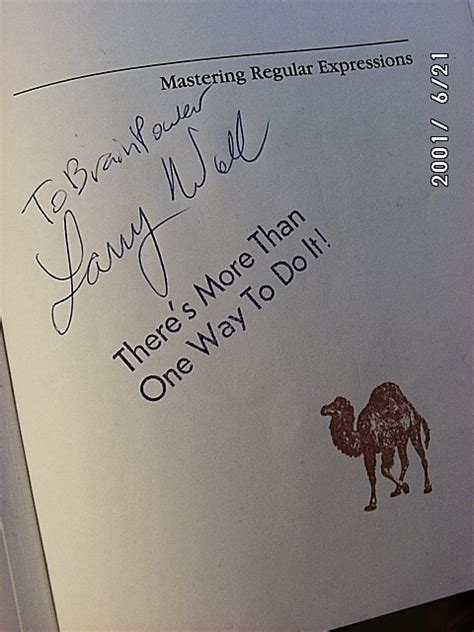 Mastering Regular Expressions
To BrainPower
Larry Wall
There's More Than
One Way To Do It!
2001/ 6/21